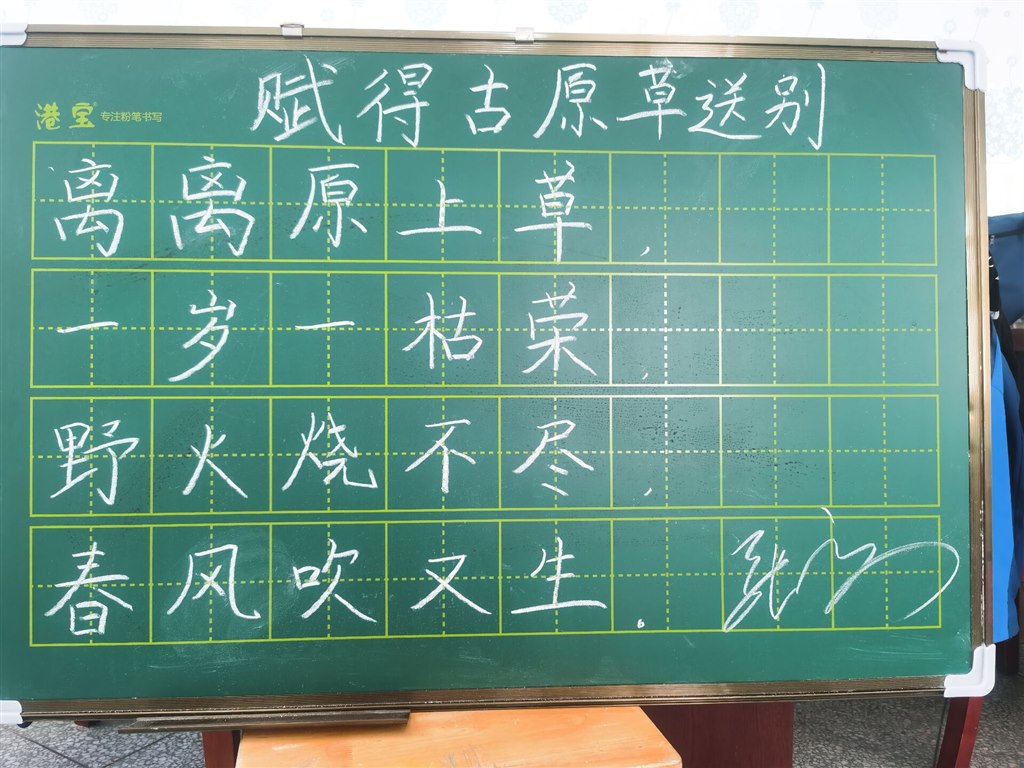 赋得古原草送别
港宝 专注粉笔书写
离离原上草,
一岁一枯荣,
野火烧不尽,
春风吹又生.